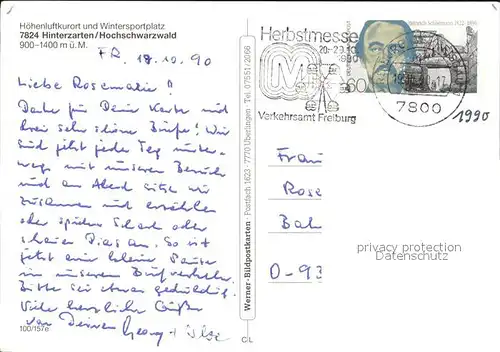 Höhenluftkurort und Wintersportplatz
7824 Hinterzarten/Hochschwarzwald
900-1400 m ü. M.
FR, 18.10.90
Liebe Rosemarie!
Danke für Deine Karte und
zwei sehr schöne Briefe! Wir
sind jetzt jeden Tag unter-
wegs mit unserem Besuch
und am Abend sitzen wir
zusammen und erzählen
oder spielen Schach oder
schauen Dias an. So ist
jetzt eine kleine Pause
in unserem Briefverkehr.
Bitte sei etwas geduldig.
Viele herzliche Grüße
von Deinen Georg + Ilse
100/157e
Werner-Bildpostkarten · Postfach 1623 · 7770 Überlingen · Tel. 07551/2066
C/L
Herbstmesse
20.-29.10.
1990
M
Verkehrsamt Freiburg
Heinrich Schliemann 1822-1890
60
7800
1990
Frau
Rose
Bah
O-93
privacy protection
Datenschutz